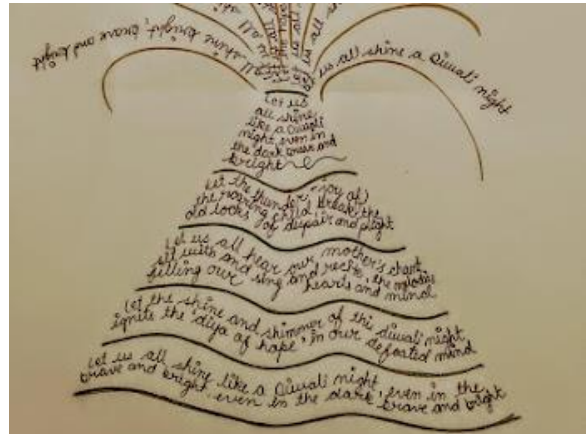 shine bright, brave and bright
us all shine a Diwali night
Let us
all shine
like a Diwali
night, even in
the dark brave and
bright
Let the thunder, 'joy of
the roaring child' break the
old locks of despair and plight
Let us all hear our mother's chant
sit with and sing and recite, the melodies
filling our hearts and mind
Let the shine and shimmer of this diwali night
ignite the 'diya of hope' in our defeated mind
Let us all shine like a Diwali night, even in the
brave and bright, even in the dark, brave and bright